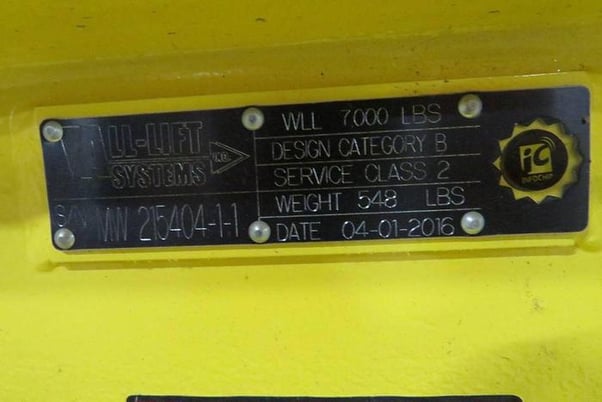 ALL-LIFT
SYSTEMS INC.
S/N WW 215404-1-1
WLL 7000 LBS
DESIGN CATEGORY B
SERVICE CLASS 2
WEIGHT 548 LBS
DATE 04-01-2016
iC
INFOCHIP